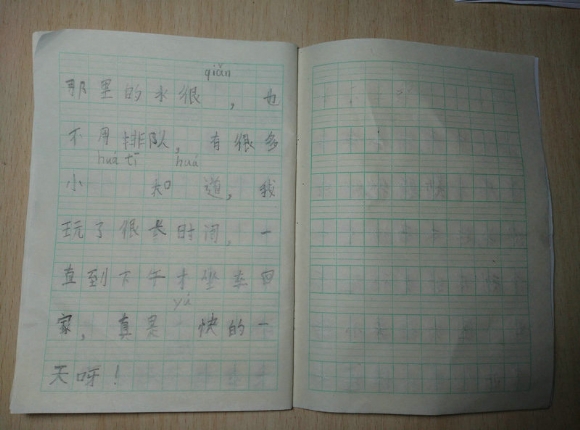 那里的水很qiǎn,也
不用排队,有很多
小huá tī和huá道,我
玩了很长时间,一
直到下午才坐车回
家,真是yú快的一
天呀!